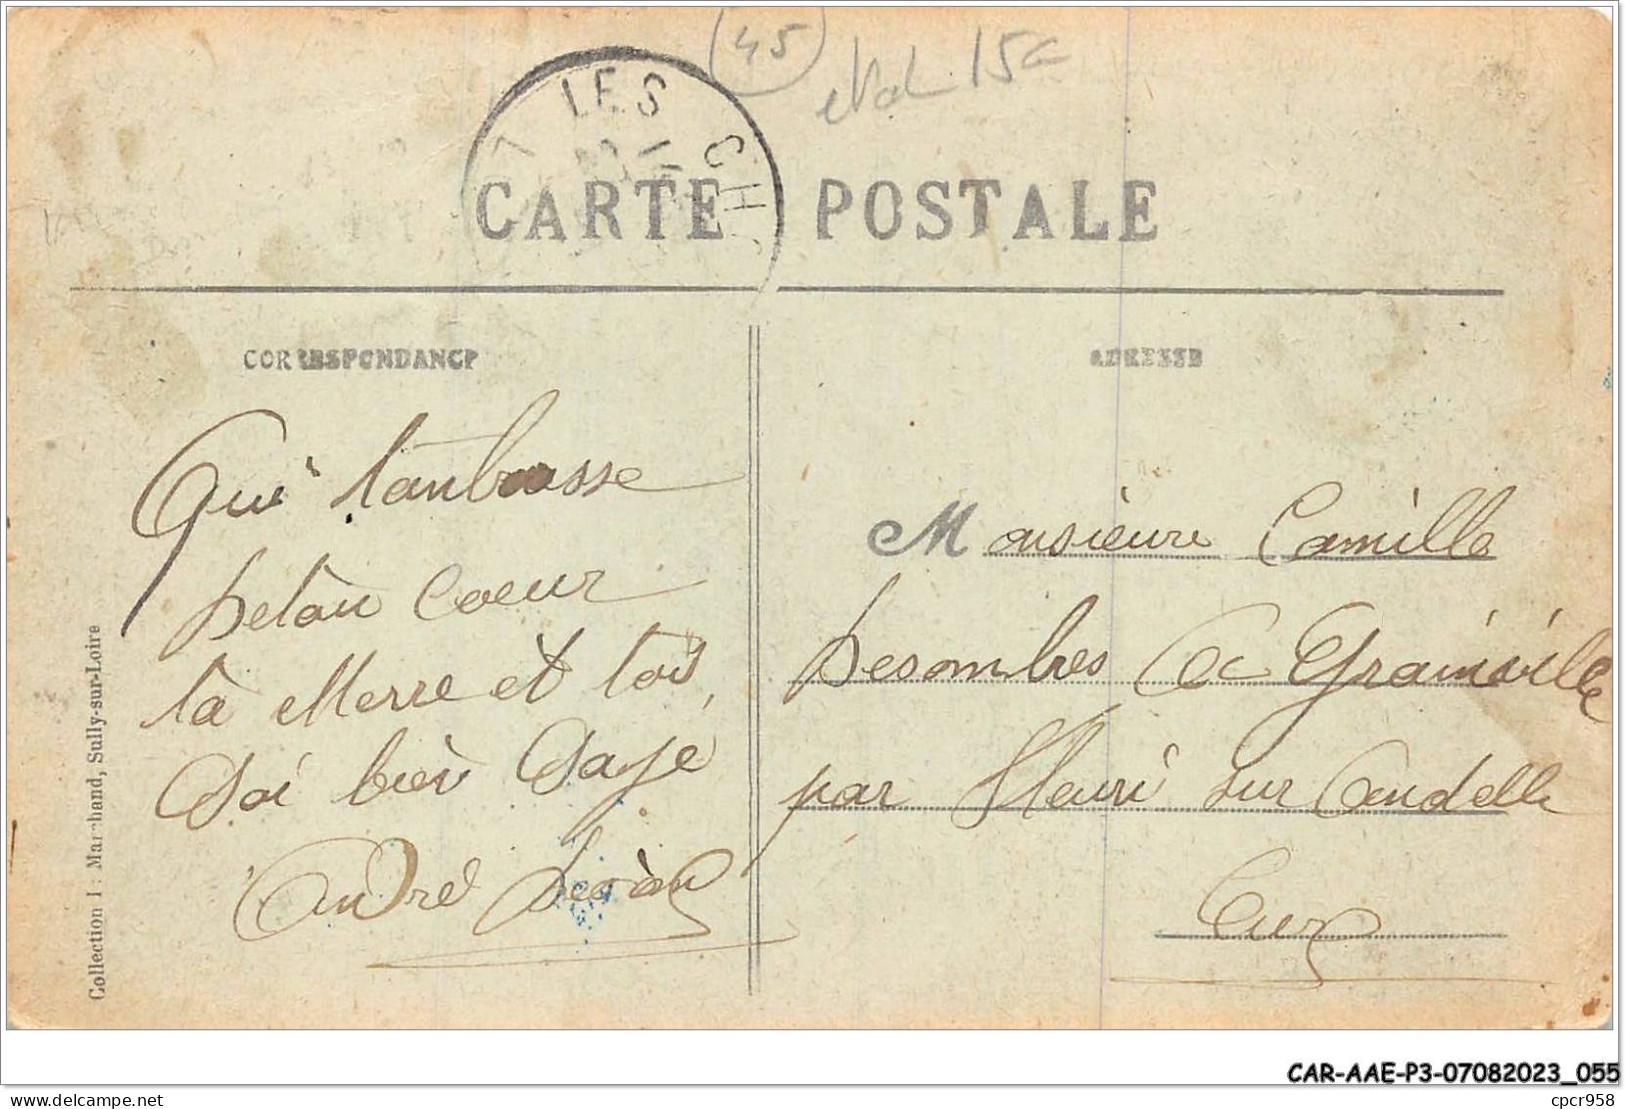 45
15c
LES CH
CARTE POSTALE
CORRESPONDANCE
ADRESSE
Qui tanbrasse
Detou Coeur
ta Merre et toi
Soi bien Saje
André
Monsieure Camille
Desombres a Grainville
par Fleuri sur Candelle
Eure
Collection I. Marchand, Sully-sur-Loire
CAR-AAE-P3-07082023_055
cpcr958